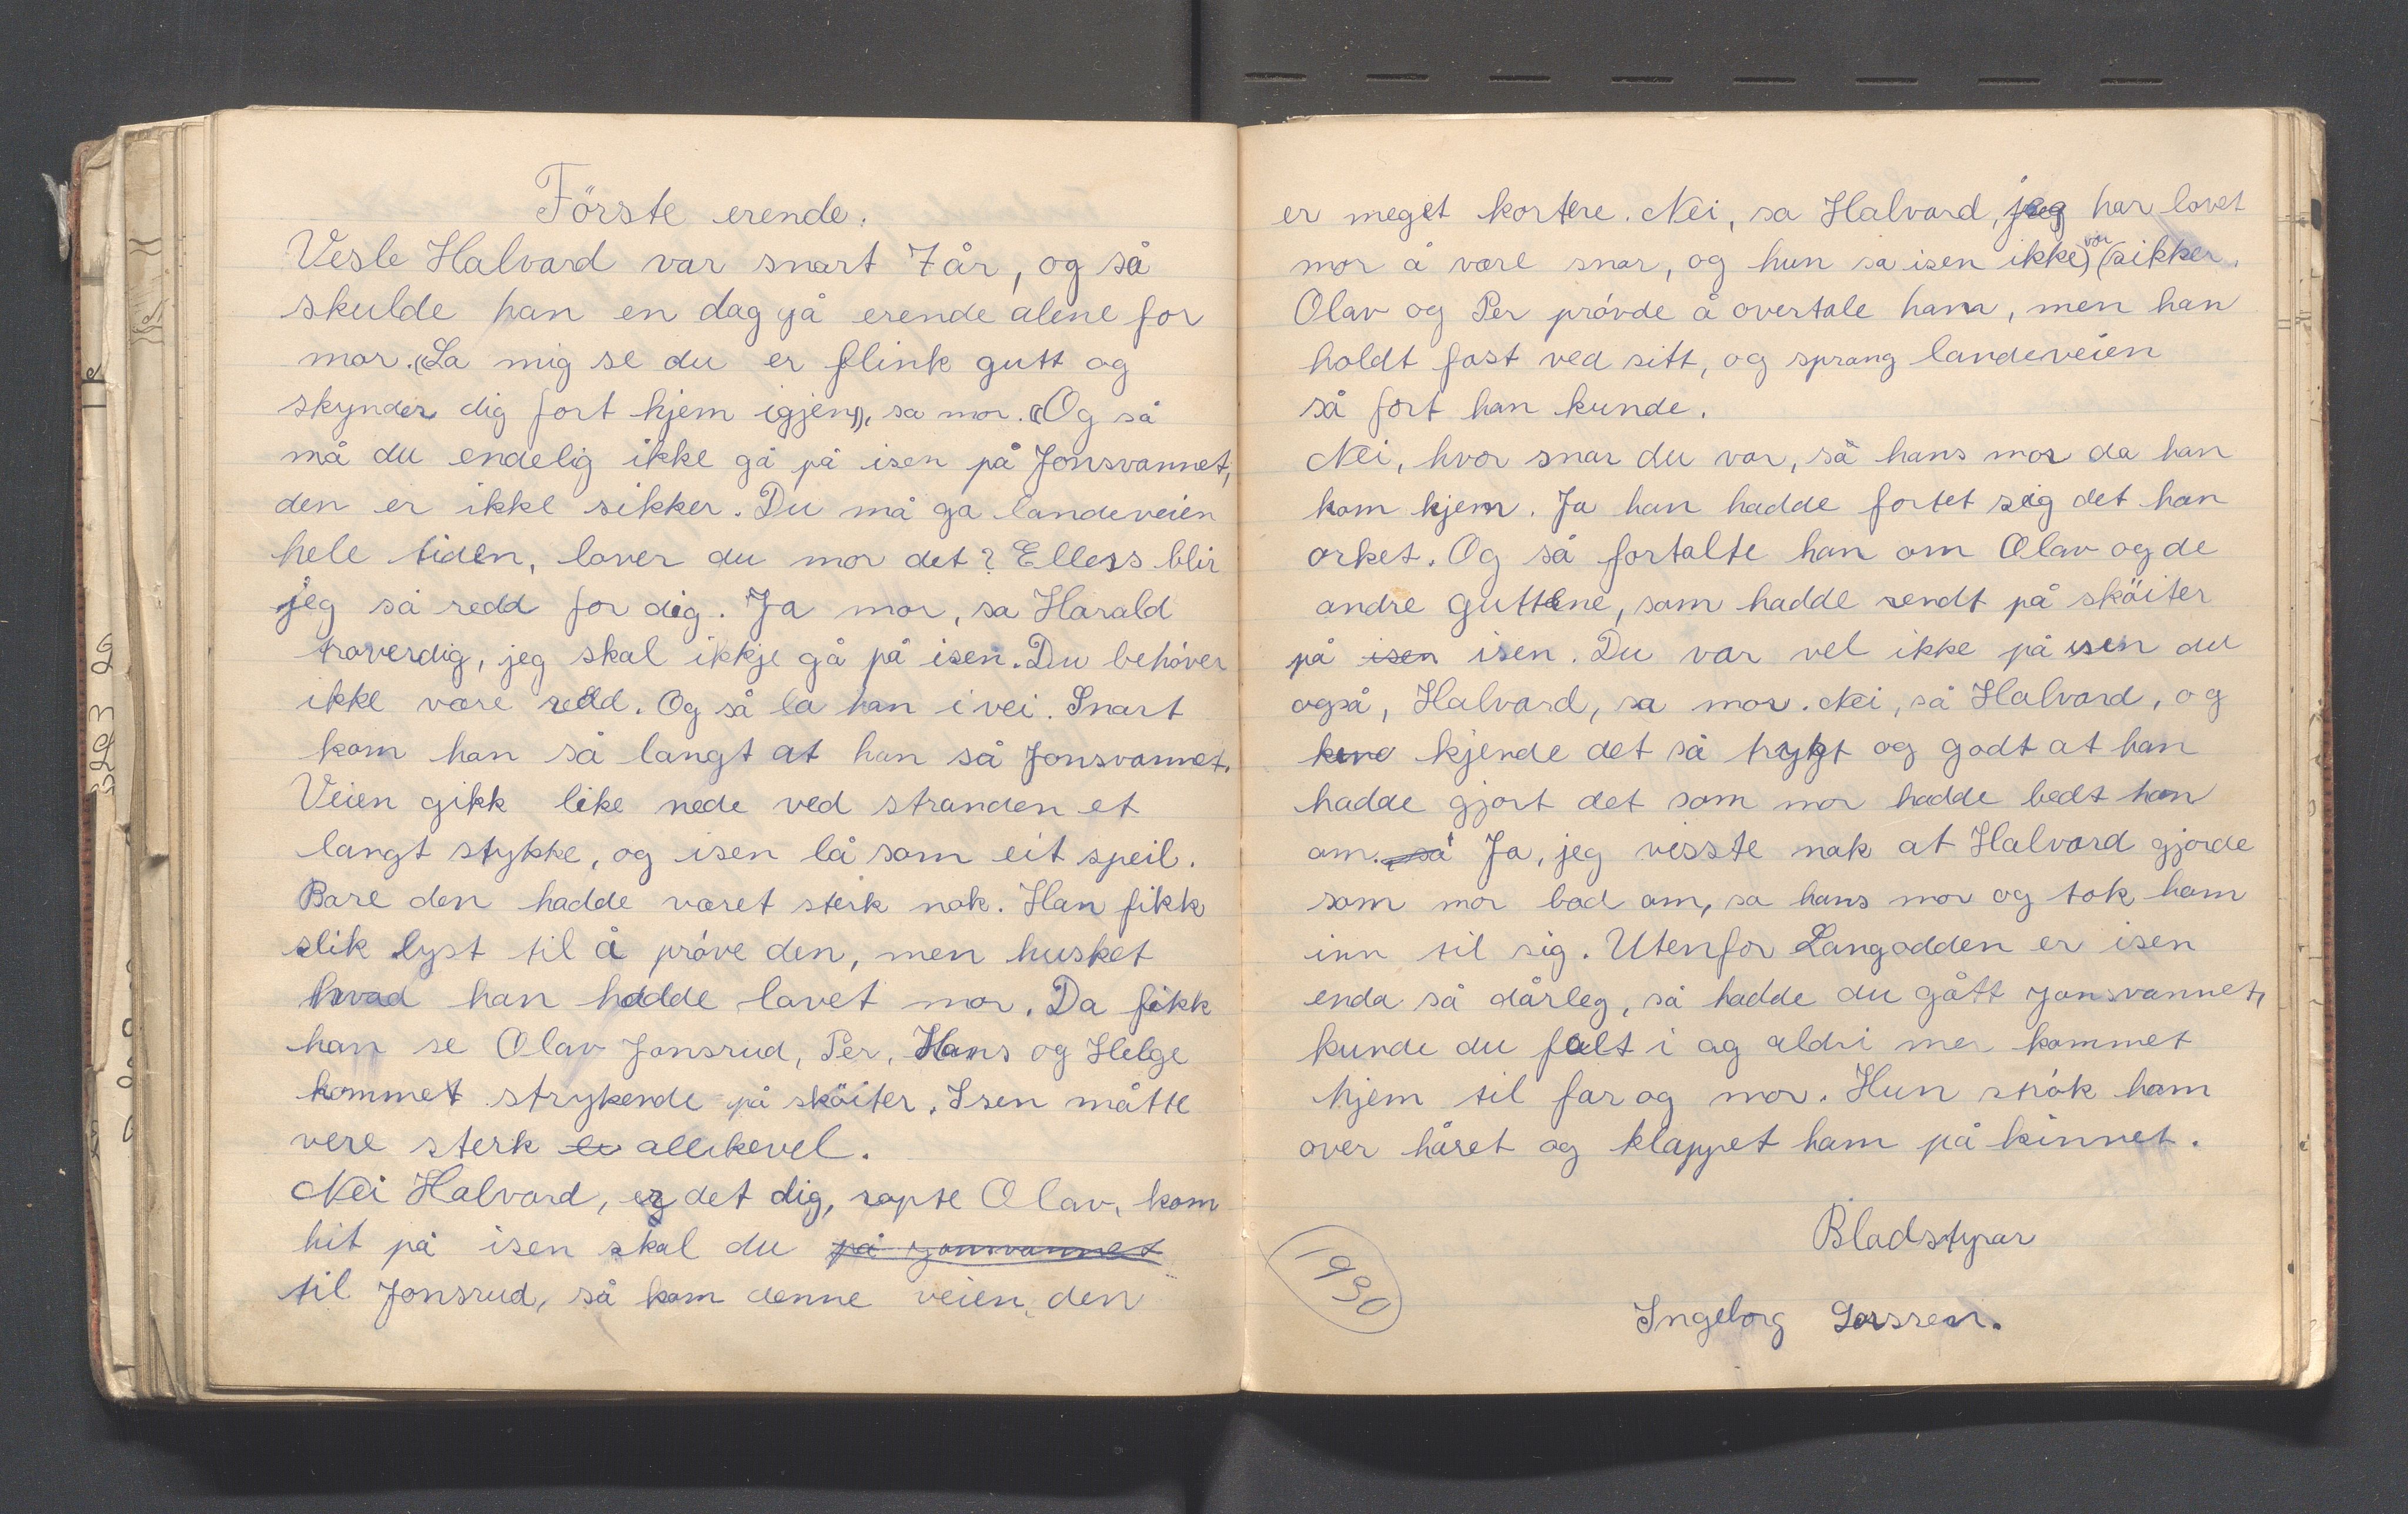 Förste erende.
Vesle Halvard var snart 7 år, og så
skulde han en dag gå erende alene for
mor. (La mig se du er flink gutt og
skynder dig fort hjem igjen), sa mor. (Og så
må du endelig ikke gå på isen på Jonsvannet,
den er ikke sikker. Du må ga landeveien
hele tiden, lover du mor det? Ellers blir
jeg så redd for dig. Ja mor, sa Harald
troverdig, jeg skal ikkje gå på isen. Du behöver
ikke være redd. Og så la han i vei. Snart
kom han så langt at han så Jonsvannet.
Veien gikk like nede ved stranden et
langt stykke, og isen lå som eit speil.
Bare den hadde været sterk nok. Han fikk
slik lyst til å pröve den, men husket
hvad han hadde lovet mor. Da fikk
han se Olav Jonsrud, Per, Hans og Helge
kommet strykende på sköiter. Isen måtte
vere sterk allikevel.
Nei Halvard, er det dig, ropte Olav, kom
hit på isen skal du på jonsvannet
til Jonsrud, så kom denne veien, den
er meget kortere. Nei, sa Halvard, jeg har lovet
mor å være snar, og hun sa isen ikke) var (sikker.
Olav og Per prövde å overtale ham, men han
holdt fast ved sitt, og sprang landeveien
så fort han kunde.
Nei, hvor snar du var, så hans mor da han
kom hjem. Ja han hadde fortet sig det han
orket. Og så fortalte han om Olav og de
andre guttene, som hadde rendt på sköiter
på isen isen. Du var vel ikke på isen du
også, Halvard, sa mor. Nei, så Halvard, og
kjende det så trykt og godt at han
hadde gjort det som mor hadde bedt han
om. så Ja, jeg visste nok at Halvard gjorde
som mor bad om, sa hans mor og tok ham
inn til sig. Utenfor Langodden er isen
enda så dårleg, så hadde du gått jonsvannet,
kunde du falt i og aldri mer kommet
hjem til far og mor. Hun strök ham
over håret og klappet ham på kinnet.
Bladstyrar
1930
Ingeborg